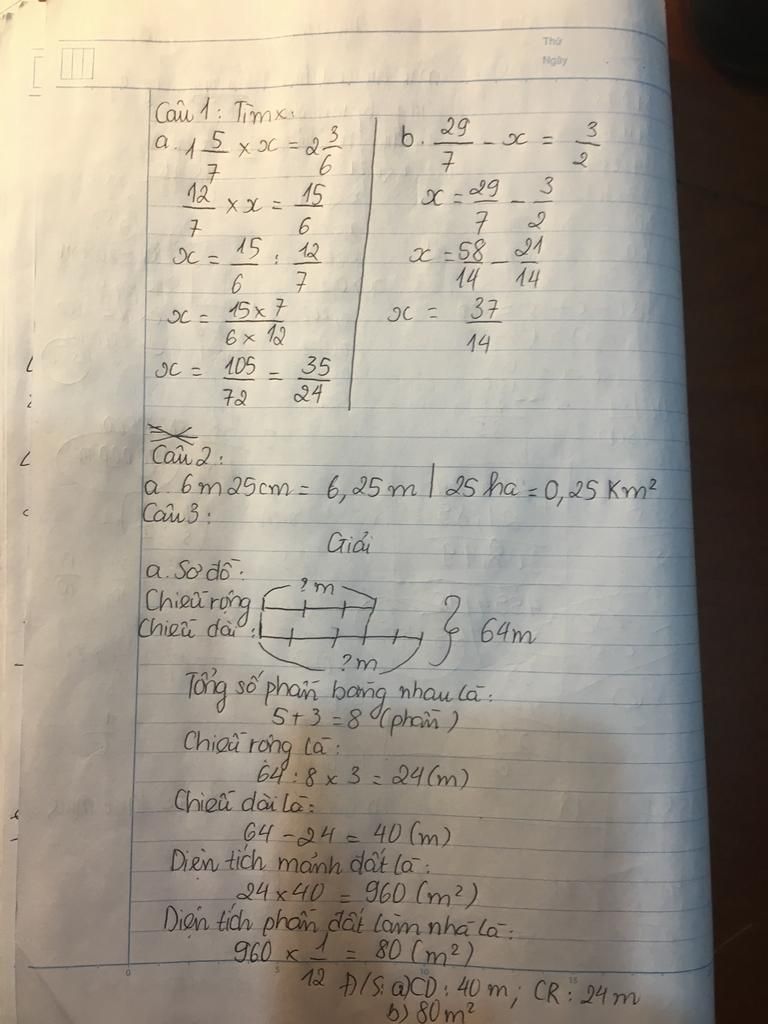 Thứ
Ngày
Câu 1: Tìm x:
a. 1 5/7 × x = 2 3/6
12/7 × x = 15/6
x = 15/6 : 12/7
x = 15 × 7 / 6 × 12
x = 105/72 = 35/24
b. 29/7 - x = 3/2
x = 29/7 - 3/2
x = 58/14 - 21/14
x = 37/14
Câu 2:
a. 6m25cm = 6,25m | 25 ha = 0,25 Km²
Câu 3:
Giải
a. Sơ đồ:
? m
Chiều rộng
Chiều dài :
64m
? m
Tổng số phần bằng nhau là:
5 + 3 = 8 (phần)
Chiều rộng là:
64 : 8 × 3 = 24 (m)
Chiều dài là:
64 - 24 = 40 (m)
Diện tích mảnh đất là:
24 × 40 = 960 (m²)
Diện tích phần đất làm nhà là:
960 × 1/12 = 80 (m²)
Đ/S: a) CD : 40 m ; CR : 24 m
b) 80 m²
0 5 10 15